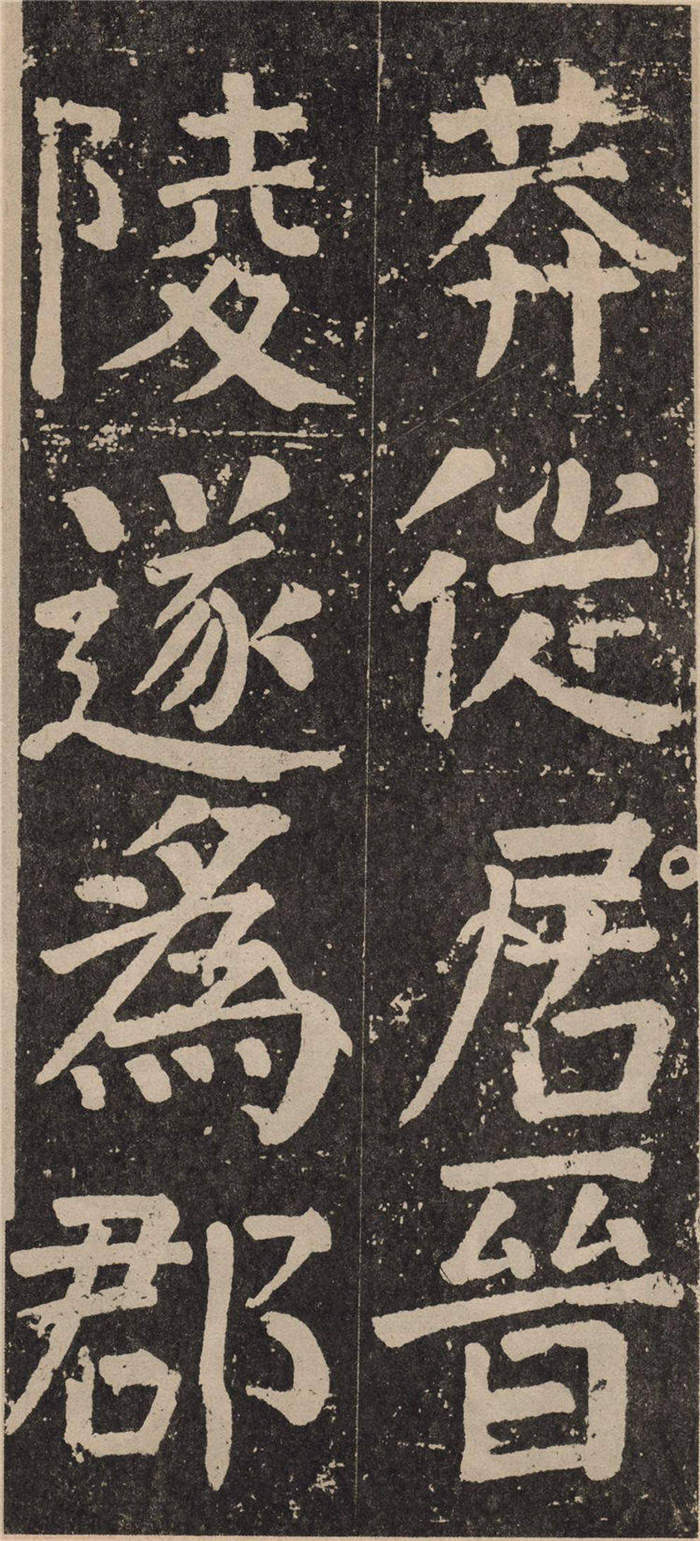 莽從居晉
陵遂爲郡